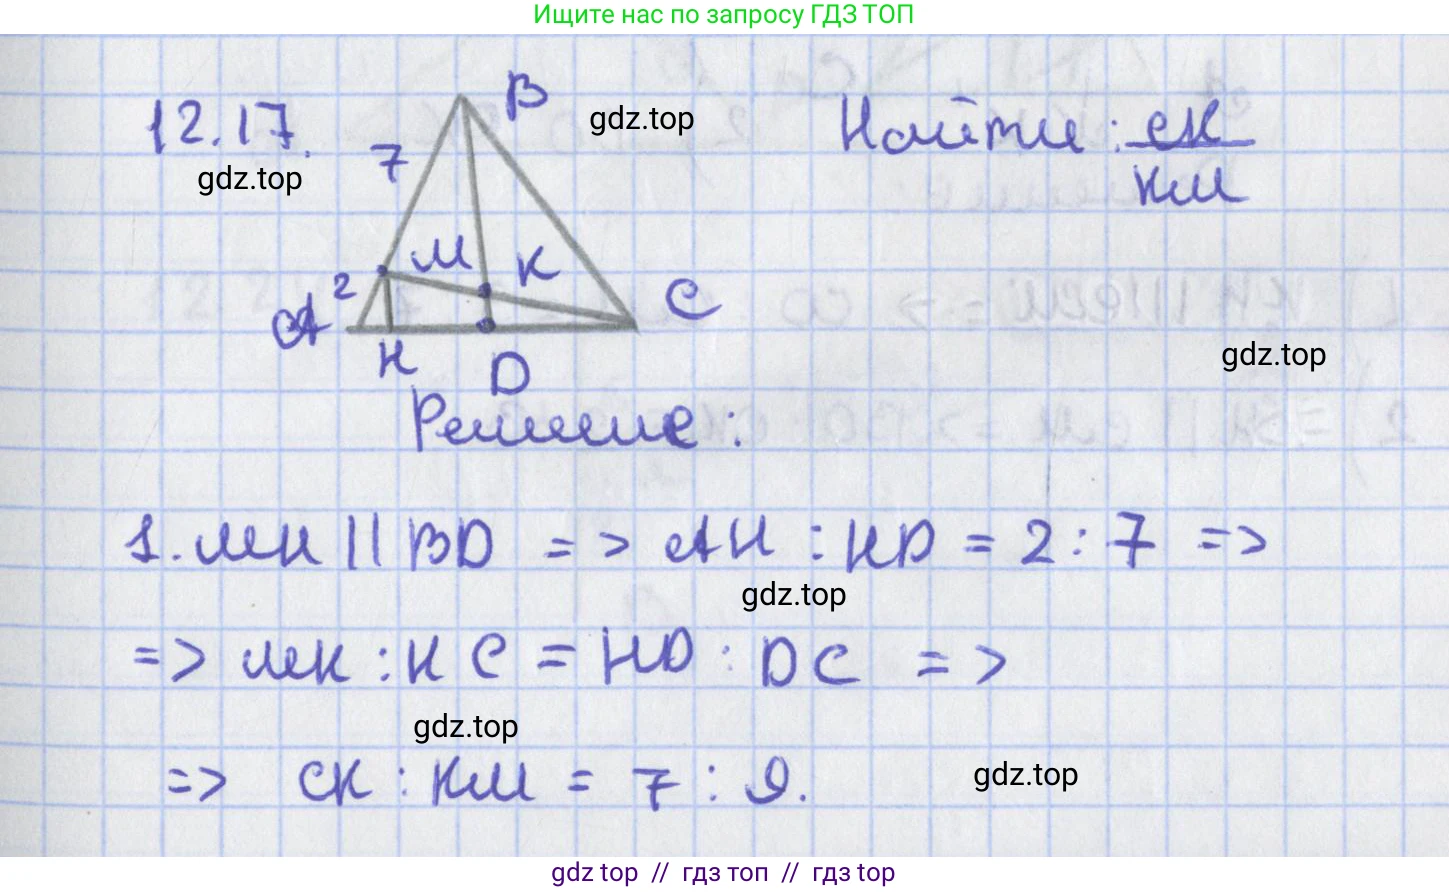 Ищите нас по запросу ГДЗ ТОП
12.17.
gdz.top
B
7
gdz.top
Найти: CK
KM
M
K
2
A
C
H
D
gdz.top
Решение:
1. MH || BD => AH : HD = 2 : 7 =>
gdz.top
=> MK : KC = HD : DC =>
gdz.top
=> CK : KM = 7 : 9.
gdz.top
gdz top // гдз топ // гдз top